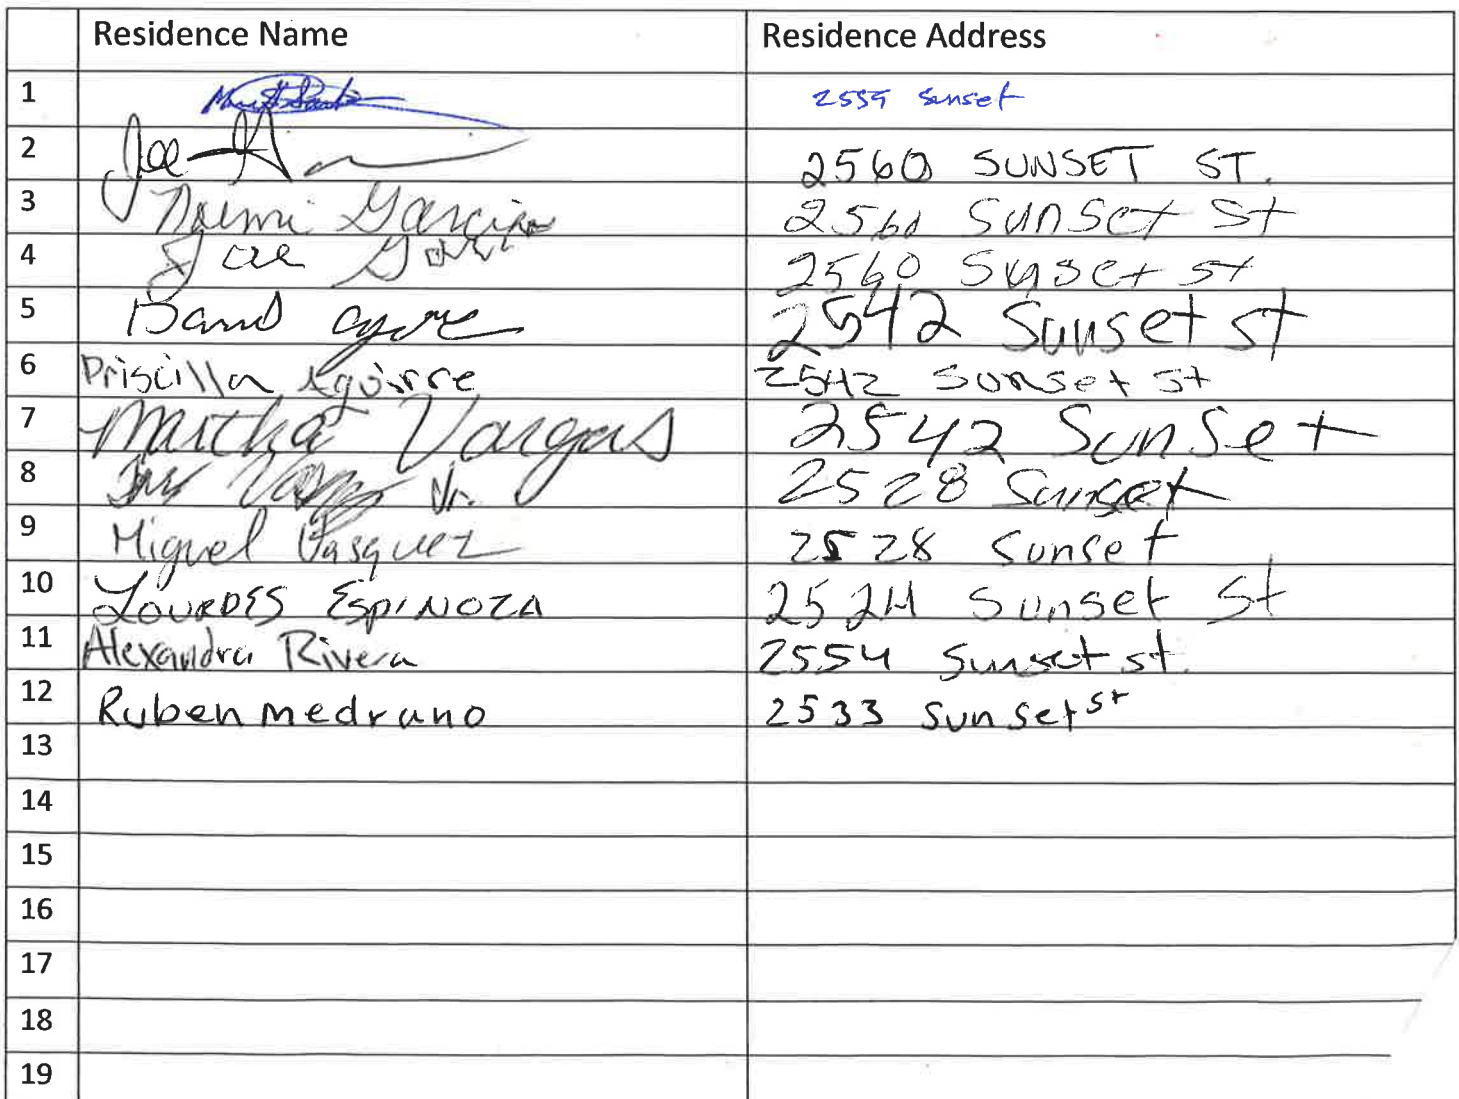 Residence Name Residence Address
1 Sunset
2 Joe 2560 SUNSET ST.
3 Noemi Garcia 2560 Sunset St
4 Joe 2560 Sunset st
5 David 2542 Sunset st
6 Priscilla Aguirre 2542 Sunset st
7 Martha Vargas 2542 Sunset
8 Jr. 2528 Sunset
9 Miguel Vasquez 2528 Sunset
10 LOURDES ESPINOZA 2524 Sunset St
11 Alexandra Rivera 2554 Sunset st.
12 Ruben medrano 2533 Sunset st
13
14
15
16
17
18
19